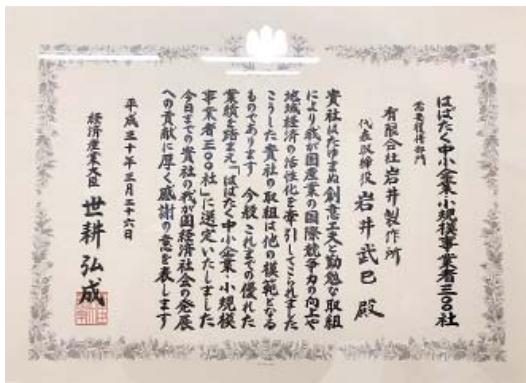 はばたく中小企業・小規模事業者三〇〇社
需要獲得部門
有限会社 岩井製作所
代表取締役 岩井武巳 殿
貴社はたゆまぬ創意工夫と勤勉な取組
により我が国産業の国際競争力の向上や
地域経済の活性化を牽引してこられました
こうした貴社の取組は他の模範となる
ものであります 今般これまでの優れた
業績を踏まえ「はばたく中小企業・小規模
事業者三〇〇社」に選定いたしました
今日までの貴社の我が国経済社会の発展
への貢献に厚く感謝の意を表します
平成三十年三月二十六日
経済産業大臣 世耕弘成